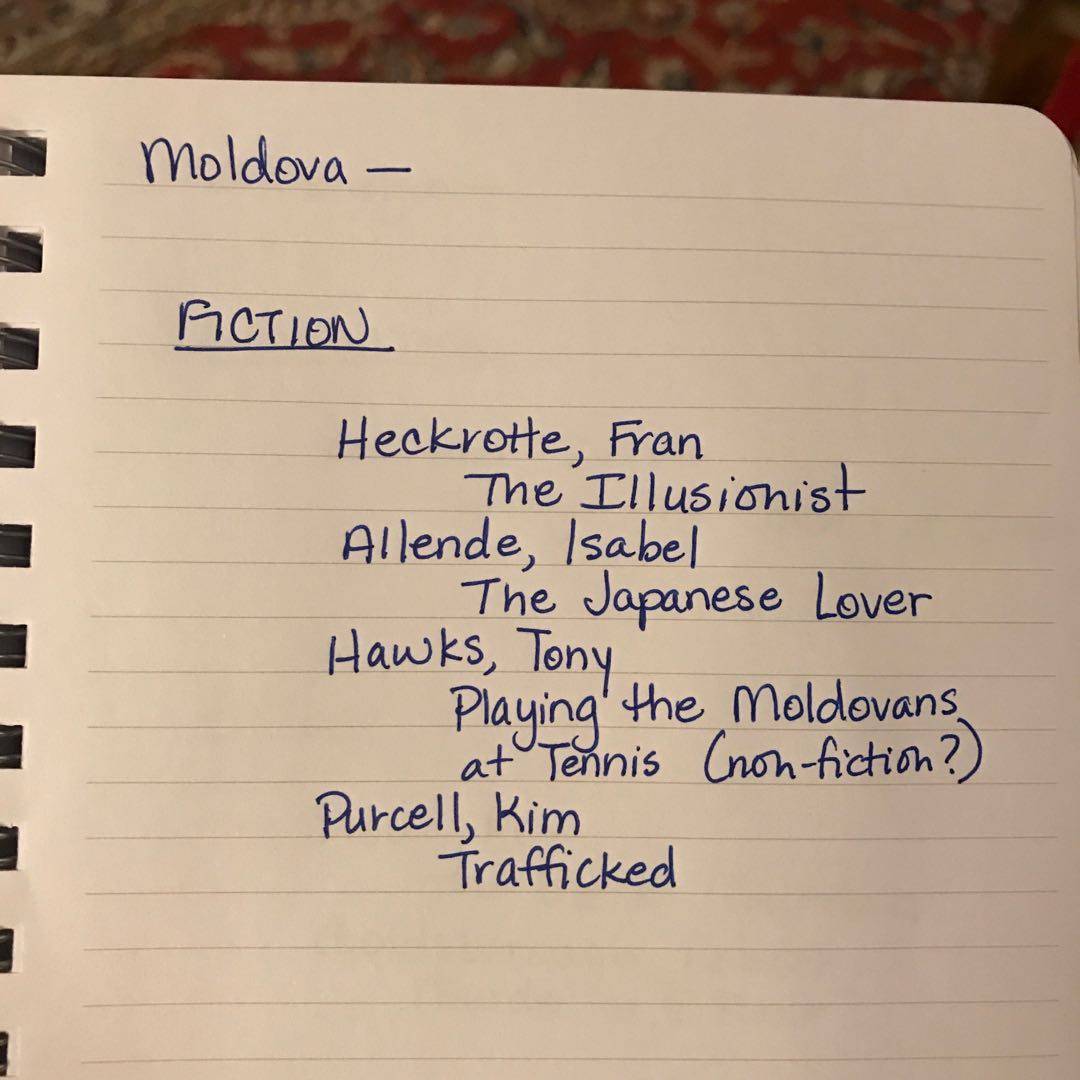 Moldova —
FICTION
Heckrotte, Fran
The Illusionist
Allende, Isabel
The Japanese Lover
Hawks, Tony
Playing the Moldovans
at Tennis (non-fiction?)
Purcell, Kim
Trafficked